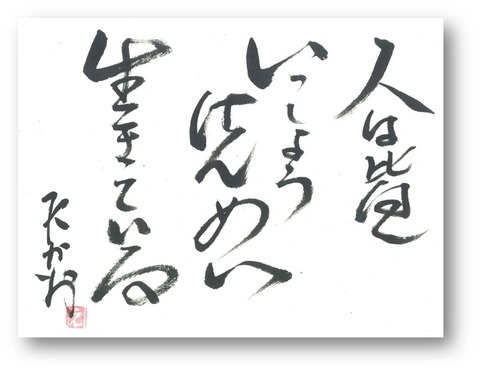 人は皆
いっしょう
けんめい
生きている
たかお